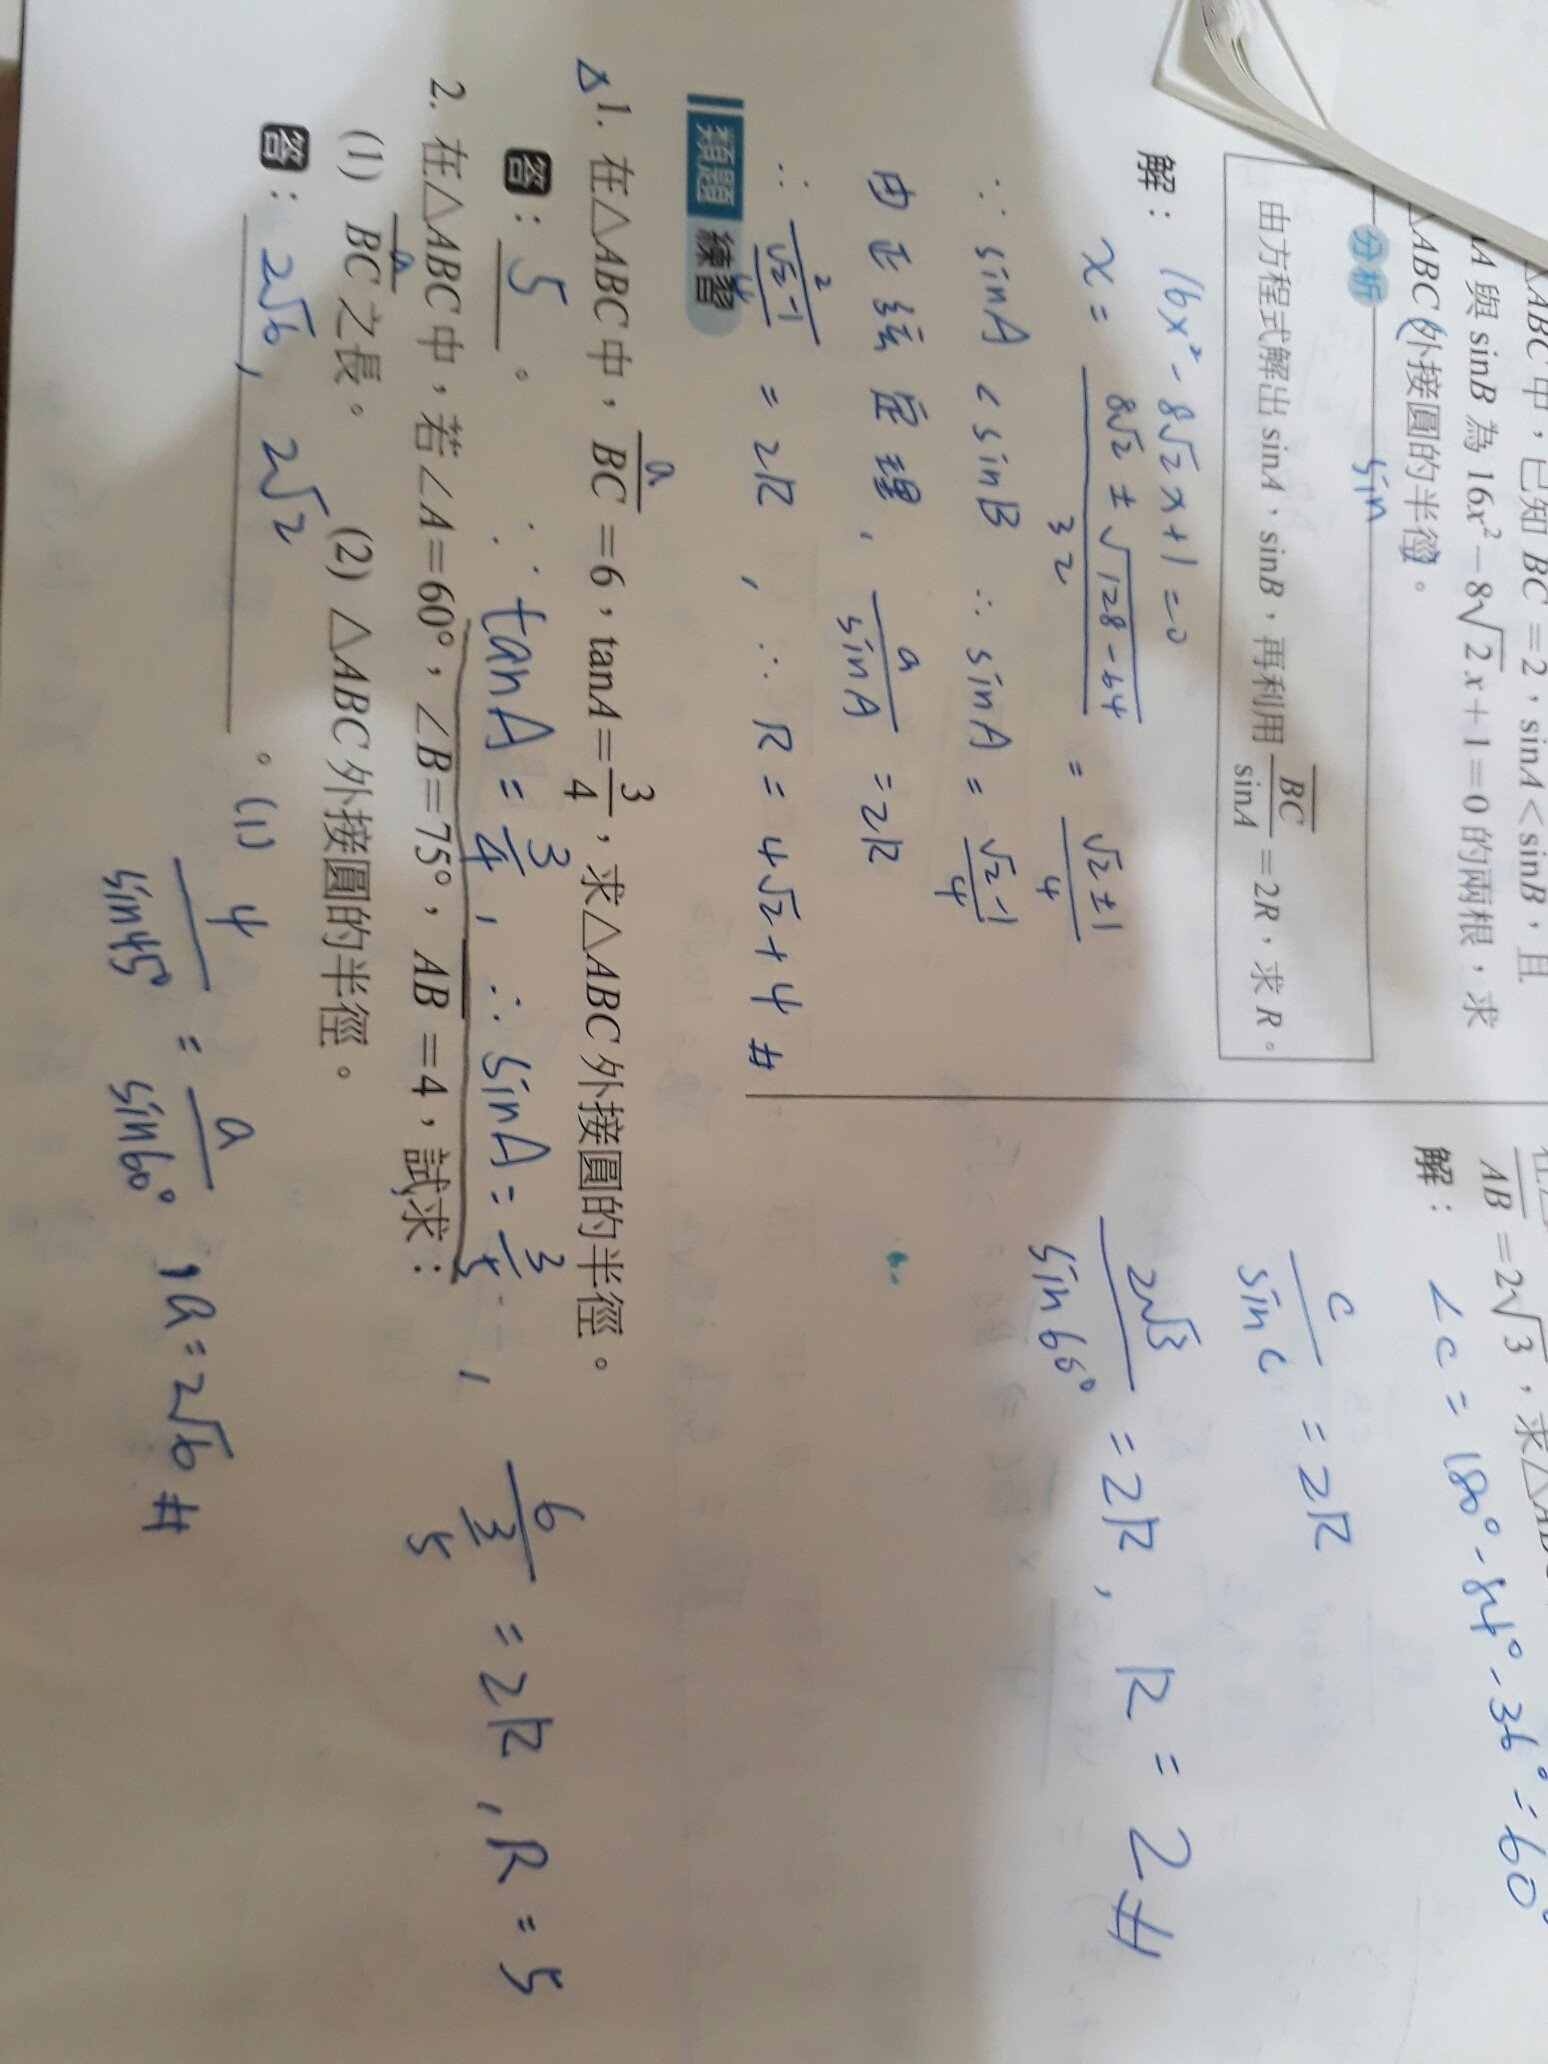 △ABC 中，已知 BC =2，sinA＜sinB，且
A 與 sinB 為 16x²－8√2x＋1＝0 的兩根，求
△ABC 外接圓的半徑。
分析
sin
由方程式解出 sinA、sinB，再利用 BC/sinA =2R，求 R。
解：
16x²-8√2x+1=0
x = (8√2 ± √(128-64))/32 = (√2±1)/4
∵ sinA < sinB ∴ sinA = (√2-1)/4
由正弦定理, a/sinA = 2R
∴ 2/((√2-1)/4) = 2R , ∴ R = 4√2+4 #
AB =2√3，求△ABC
解：
∠C = 180°-84°-36°=60°
c/sinC = 2R
2√3/sin60° = 2R, R = 2 #
類題 練習
△1. 在△ABC中，BC =6，tanA=3/4，求△ABC外接圓的半徑。
a
答：5。
∵ tanA = 3/4, ∴ sinA = 3/5, 6/(3/5) = 2R, R = 5
2. 在△ABC中，若∠A=60°，∠B=75°，AB =4，試求：
a
(1) BC之長。 (2) △ABC外接圓的半徑。
答：2√6, 2√2。
(1) 4/sin45° = a/sin60° , a = 2√6 #